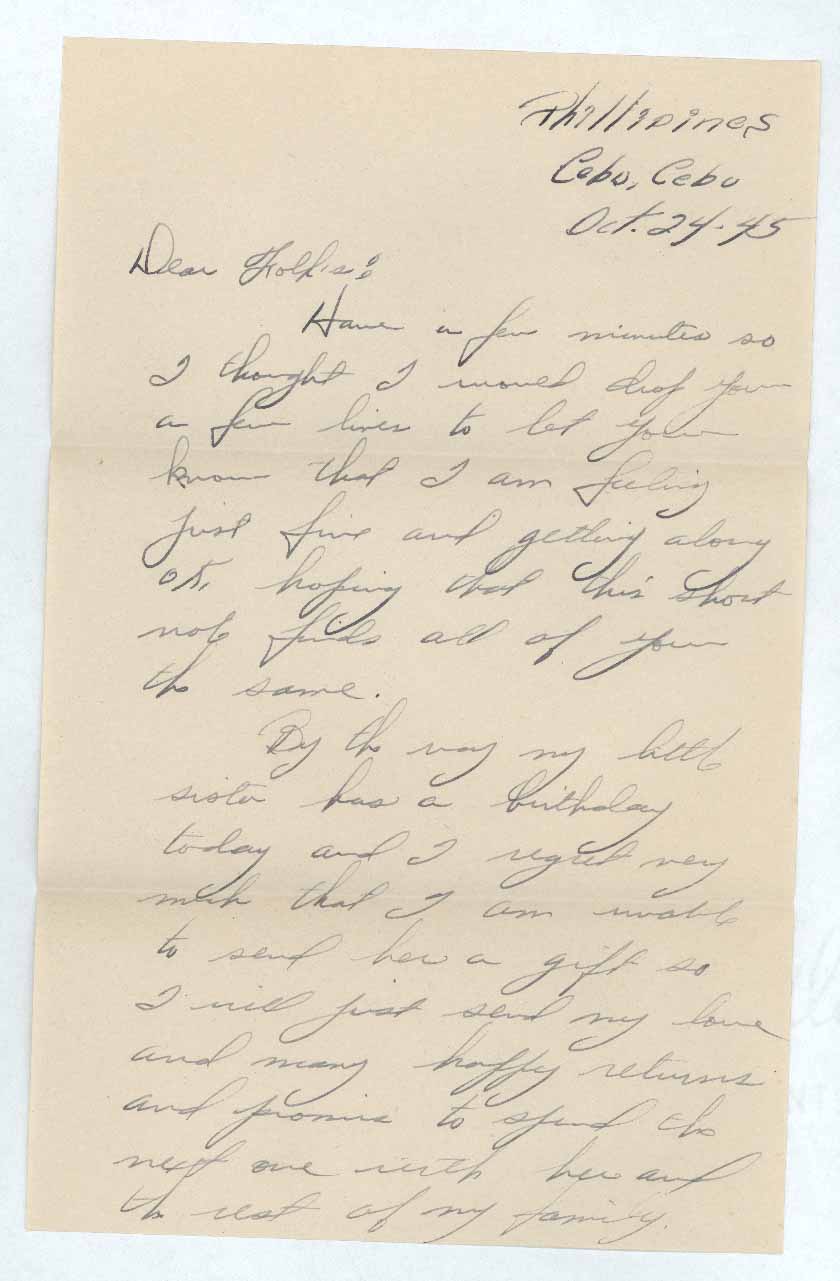 Phillipines
Cebu, Cebu
Oct. 24-45
Dear Folk's:
Have a few minutes so
I thought I would drop you
a few lines to let you
know that I am feeling
just fine and getting along
OK, hoping that this short
note finds all of you
the same.
By the way my little
sister has a birthday
today and I regret very
much that I am unable
to send her a gift so
I will just send my love
and many happy returns
and promise to spend the
next one with her and
the rest of my family.